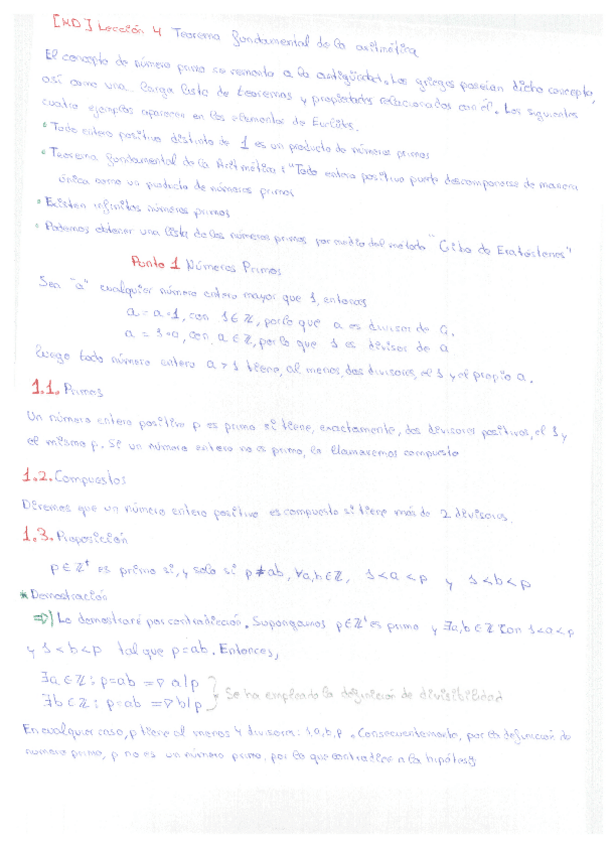 [MD] Lección 4 Teorema fundamental de la aritmética
El concepto de número primo se remonta a la antigüedad. Los griegos poseían dicho concepto,
así como una larga lista de teoremas y propiedades relacionados con él. Los siguientes
cuatro ejemplos aparecen en los elementos de Euclides.
• Todo entero positivo distinto de 1 es un producto de números primos
• Teorema fundamental de la Aritmética: "Todo entero positivo puede descomponerse de manera
única como un producto de números primos
• Existen infinitos números primos
• Podemos obtener una lista de los números primos por medio del método "Criba de Eratóstenes"
Punto 1 Números Primos
Sea "a" cualquier número entero mayor que 1, entonces
a = a·1, con 1 ∈ ℤ, por lo que a es divisor de a.
a = 1·a, con, a ∈ ℤ, por lo que 1 es divisor de a
Luego todo número entero a > 1 tiene, al menos, dos divisores, el 1 y el propio a.
1.1. Primos
Un número entero positivo p es primo si tiene, exactamente, dos divisores positivos, el 1 y
el mismo p. Si un número entero no es primo, lo llamaremos compuesto
1.2. Compuestos
Diremos que un número entero positivo es compuesto si tiene más de 2 divisores.
1.3. Proposición
p ∈ ℤ⁺ es primo si, y solo si p ≠ ab, ∀a,b ∈ ℤ, 1 < a < p y 1 < b < p
* Demostración
⇒) Lo demostraré por contradicción. Supongamos p ∈ ℤ⁺ es primo y ∃a,b ∈ ℤ con 1 < a < p
y 1 < b < p tal que p = ab. Entonces,
∃a ∈ ℤ : p = ab ⇒ a|p
∃b ∈ ℤ : p = ab ⇒ b|p } Se ha empleado la definición de divisibilidad
En cualquier caso, p tiene al menos 4 divisores: 1, a, b, p. Consecuentemente, por la definición de
número primo, p no es un número primo, por lo que contradice a la hipótesis